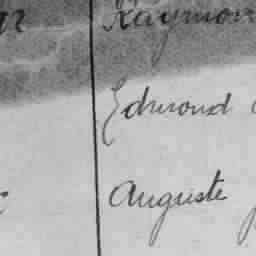 Raymon
Edmond
Auguste